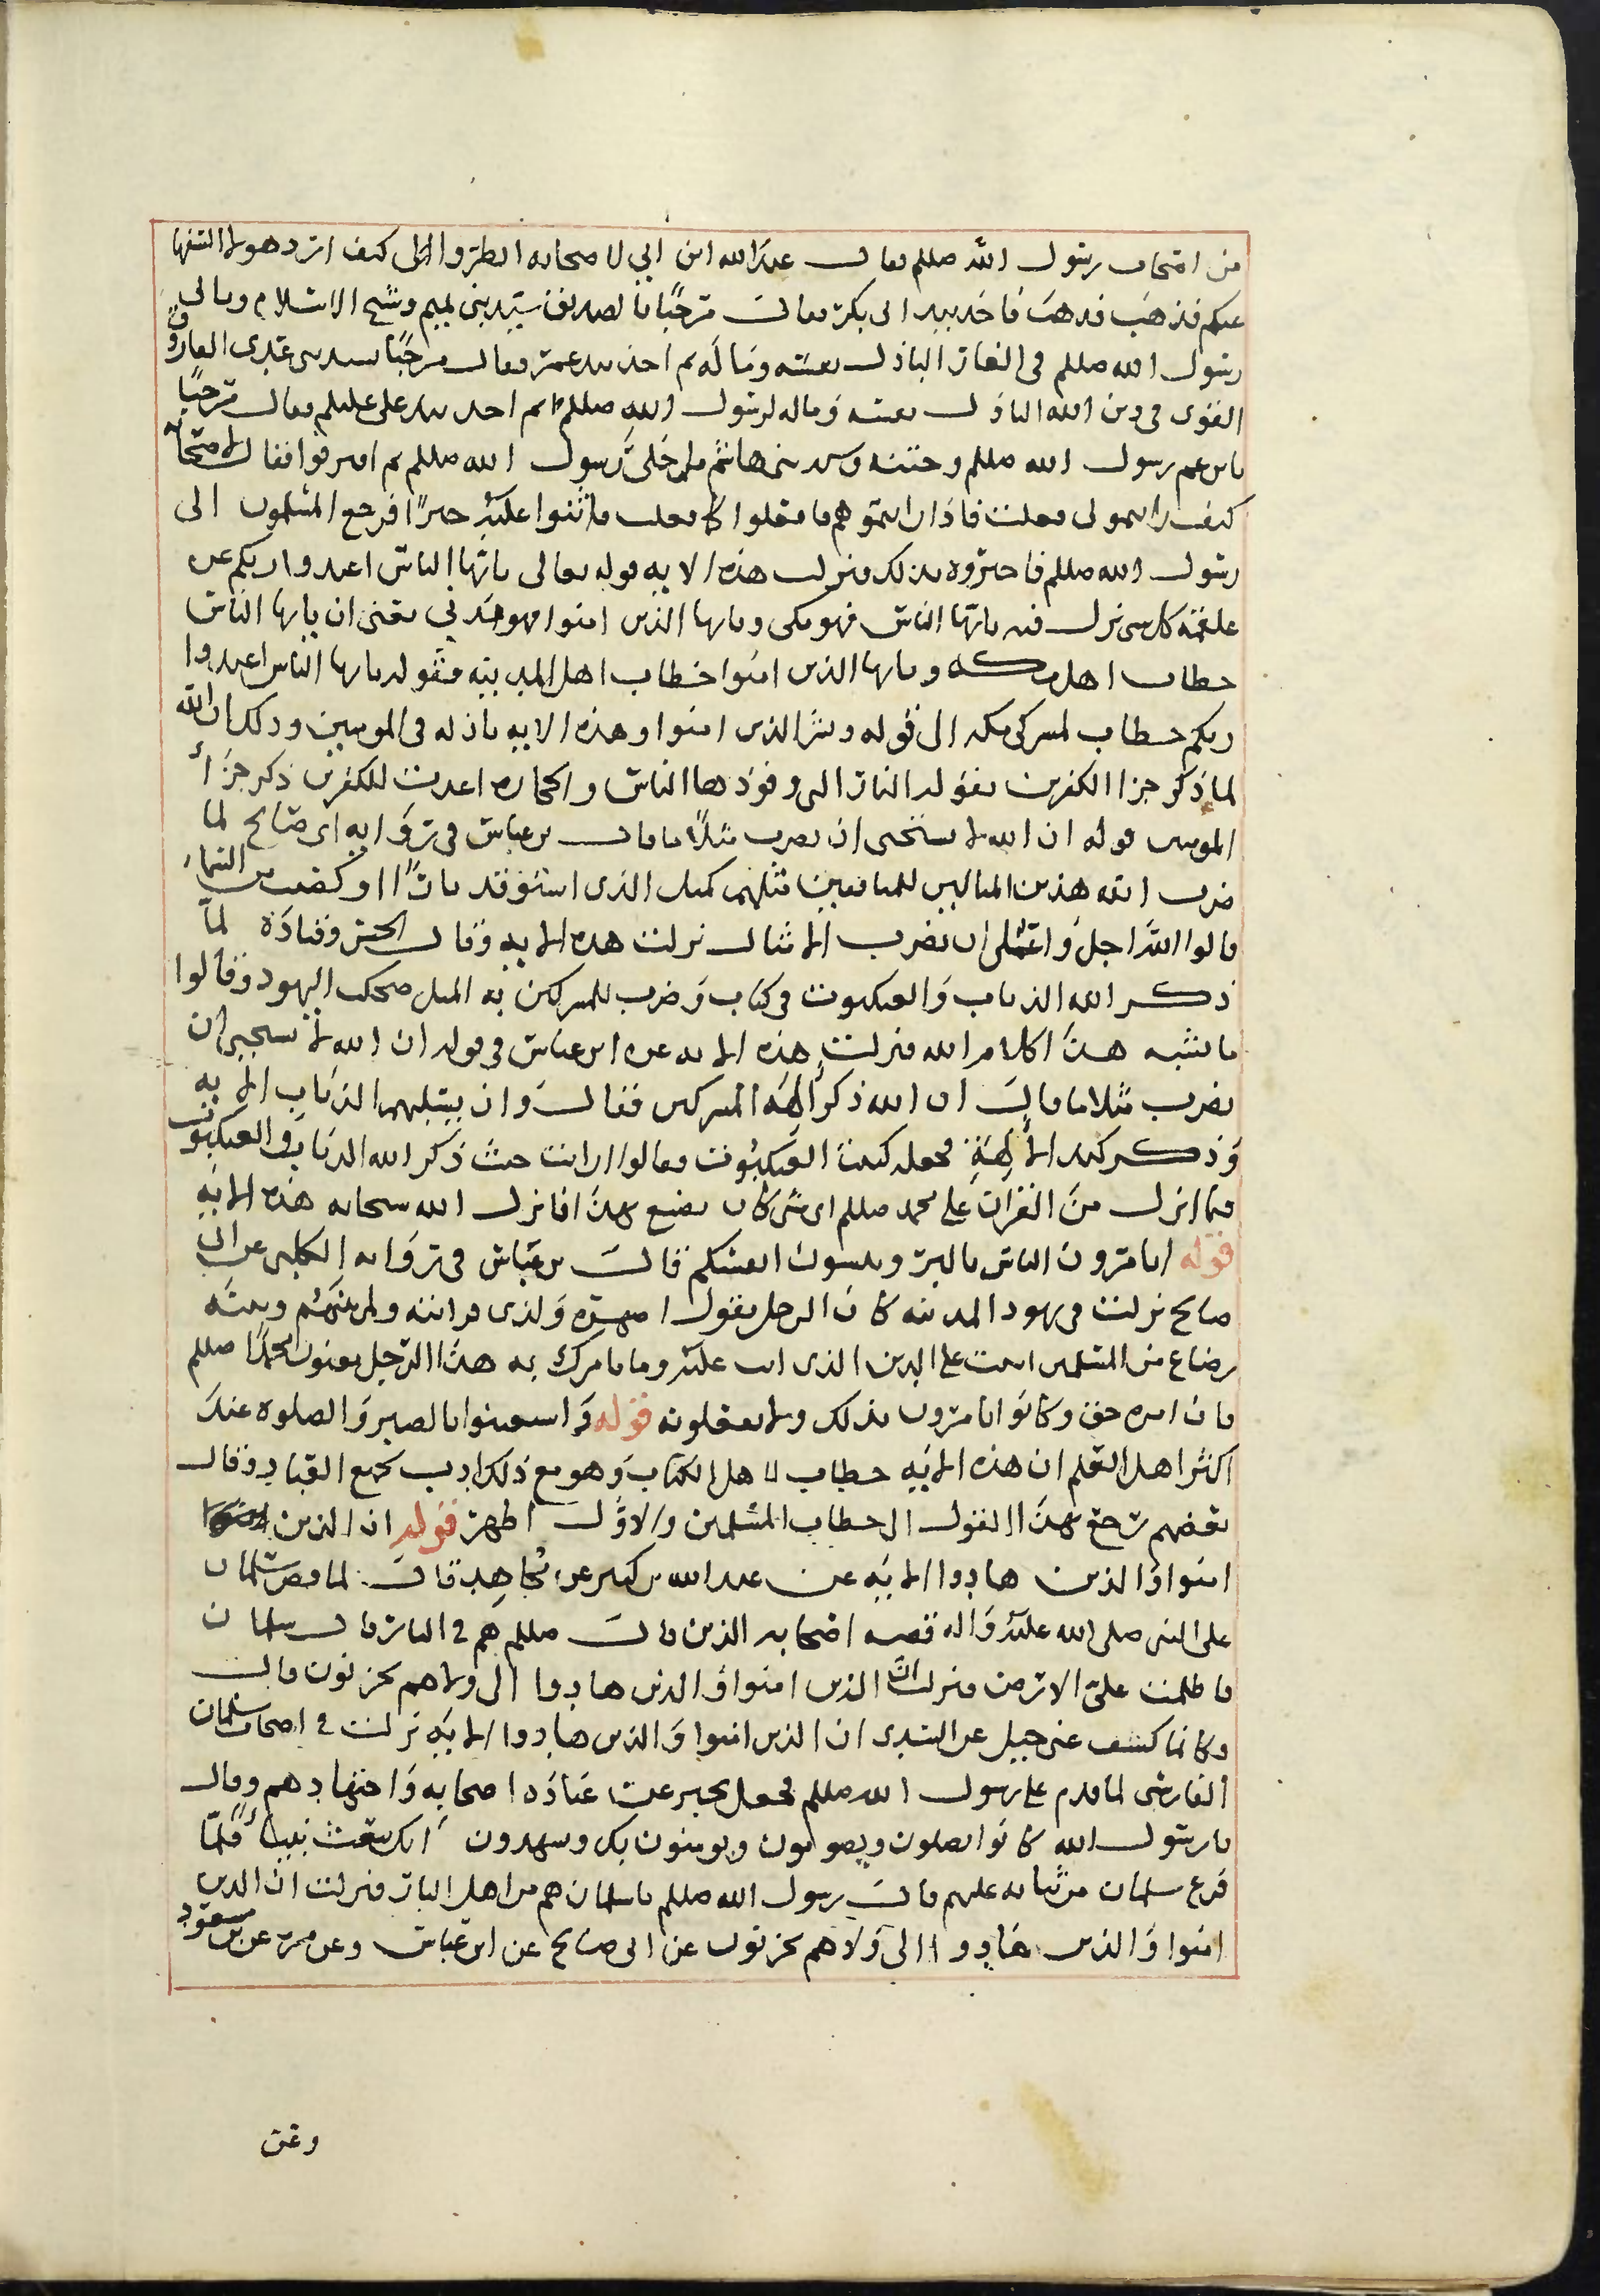 من اصحاب رسول الله صللم فقال عبدالله ابن ابي لاصحابه انظروا الى كيف ارد هولا السفها
عنكم فذهب فذهب فاخذ بيد ابي بكر فقال مرحبًا بالصديق سيد بني تميم وشيخ الاسلام وثاني
رسول الله صللم في الغار الباذل نفسه وماله ثم اخذ بيد عمر فقال مرحبًا بسيد بني عدي الفاروق
القوى في دين الله الباذل نفسه وماله لرسول الله صللم ثم اخذ بيد علي عليلم فقال مرحبًا
بابن عم رسول الله صللم وختنه وسيد بني هاشم ما خلى رسول الله صللم ثم افترقوا فقال لاصحابه
كيف رايتموني فعلت فاذا رايتموهم فافعلوا كما فعلت فاثنوا عليه خيرًا فرجع المسلمون الى
رسول الله صللم فاخبروه بذلك فنزلت هذه الايه قوله تعالى ياايها الناس اعبدوا ربكم عن
علقمة كل شي نزل فيه ياايها الناس فهو مكي وياايها الذين امنوا فهو مدني يعني ان ياايها الناس
خطاب اهل مكه وياايها الذين امنوا خطاب اهل المدينه فقوله ياايها الناس اعبدوا
ربكم خطاب لمشركي مكه الى قوله وبشر الذين امنوا وهذه الايه نازله في المومنين وذلك ان الله
لما ذكر جزا الكفرين بقوله النار التي وقودها الناس والحجاره اعدت للكفرين ذكر جزأ
المومنين قوله ان الله لا يستحيى ان يضرب مثلًا ما قال بن عباس في رواية ابي صالح لما
ضرب الله هذين المثالين للمنافقين مثلهم كمثل الذى استوقد نارًا او كصيب من السماء
قالوا الله اجل واعلى ان يضرب الامثال نزلت هذه الايه وقال الحسن وقتادة لما
ذكر الله الذباب والعنكبوت في كتاب وضرب للمشركين به المثل ضحك اليهود وقالوا
ما يشبه هذا كلام الله فنزلت هذه الايه عن ابن عباس في قوله ان الله لا يستحيى ان
يضرب مثلا ما قال ان الله ذكر الهة المشركين فقال وان يسلبهم الذباب الايه
وذكر كيد الالهة فجعله كبيت العنكبوت فقالوا ارايت حيث ذكر الله الذباب والعنكبوت
فيما انزل من القران على محمد صللم اى شى كان يصنع بهذا فانزل الله سبحانه هذه الايه
قوله اتامرون الناس بالبر وتنسون انفسكم قال بن عباس في رواية الكلبى عن ابى
صالح نزلت في يهود المدينه كان الرجل يقول لصهره ولذى قرابته ولمن بينهم وبينه
رضاع من المسلمين اثبت على الدين الذى انت عليه وما يامرك به هذا الرجل يعنون محمدًا صللم
فان امره حق وكانوا يامرون بذلك ولا يفعلونه قوله واستعينوا بالصبر والصلوه عند
اكثر اهل العلم ان هذه الايه خطاب لاهل الكتاب وهو مع ذلك ادب لجميع العباد وقال
بعضهم رجع بهذا القول الى خطاب المسلمين والاول اظهر قوله ان الذين
امنوا والذين هادوا الايه عن عبدالله بن كثير عن مجاهد قال لما قص سلمان
على النبى صلى الله عليه واله قصه اصحابه الذين قال صللم هم في النار قال سلمان
فاظلمت علي الارض فنزلت ان الذين امنوا والذين هادوا الى ولا هم يحزنون قال
وكانما كشف عنى جبل عن السدى ان الذين امنوا والذين هادوا الايه نزلت في اصحاب سلمان
الفارسى لما قدم على رسول الله صللم فجعل يخبر عن عبادة اصحابه واجتهادهم وقال
يارسول الله كانوا يصلون ويصومون ويومنون بك ويشهدون انك تبعث نبيًا فلما
فرغ سلمان من ثنائه عليهم قال رسول الله صللم ياسلمان هم من اهل النار فنزلت ان الذين
امنوا والذين هادوا الى ولا هم يحزنون عن ابى صالح عن ابن عباس وعن مره عن بن مسعود
وعن